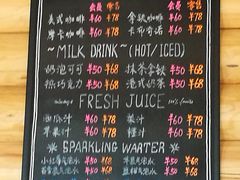 会员 零售 会员 零售
美式咖啡 ¥60 ¥78 拿铁咖啡 ¥60 ¥78
摩卡咖啡 ¥60 ¥78 卡布奇诺 ¥60 ¥78
MILK DRINK~(HOT/ICED)
奶泡可可 ¥50 ¥68 抹茶拿铁 ¥50 ¥68
热巧克力 ¥50 ¥68 港式奶茶 ¥50 ¥68
FRESH JUICE 100%
西瓜汁 ¥60 ¥78 姜汁 ¥60 ¥78
苹果汁 ¥60 ¥78 橙汁 ¥60 ¥78
SPARKLING WARTER
¥50 ¥68 ¥50 ¥68
¥50 ¥68 ¥50 ¥68